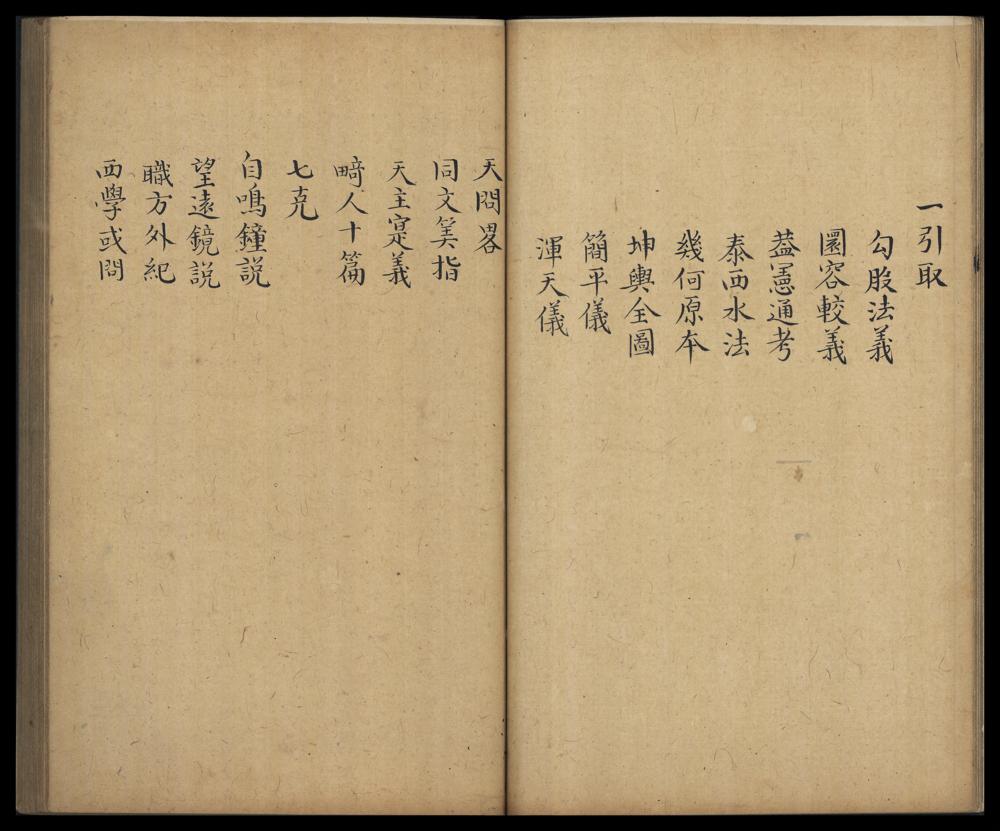 一引取
勾股法義
圜容較義
葢憲通考
泰西水法
幾何原本
坤輿全圖
簡平儀
渾天儀
天問畧
同文筭指
天主寔義
畸人十篇
七克
自鳴鐘説
望遠鏡説
職方外紀
西學或問